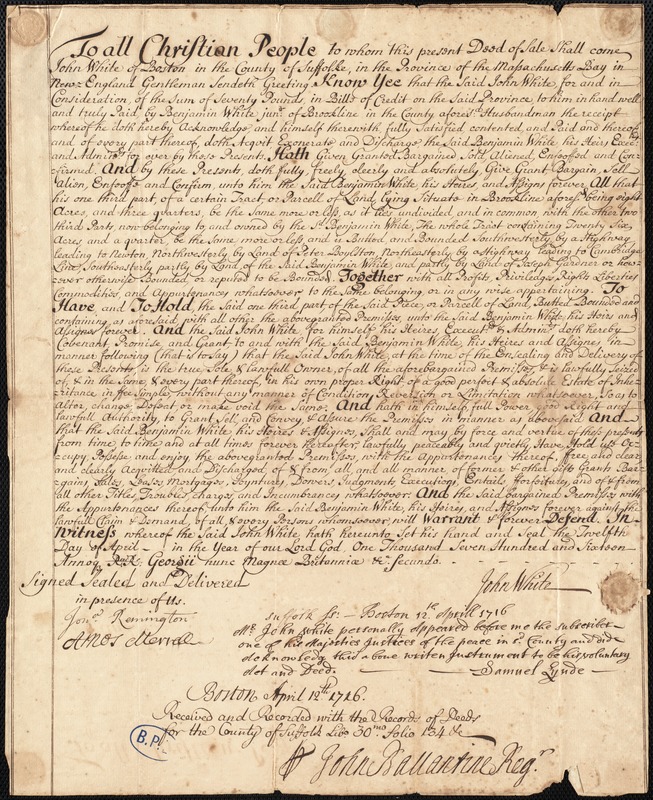 To all Christian People to whom this present Deed of Sale Shall come
John White of Boston in the County of Suffolke, in the Province of the Massachusetts Bay in
New-England Gentleman Sendeth Greeting Know Yee that the Said John White, for and in
Consideration, of the Sum of Seventy Pounds, in Bills of Credit on the Said Province to him in hand well
and truly Paid, by Benjamin White junr. of Brookline in the County aforesd. Husbandman the receipt
whereof he doth hereby Acknowledge, and himself therewith, fully Satisfied, contented, and Paid and thereof,
and of every part thereof, doth, Acqvit Exonerate, and Discharge, the Said Benjamin White, his Heirs Exec.
and Adminrs. for ever by these Presents, Hath Given Granted, Bargained Sold, Aliened, Enfeoffed and Con-
firmed. And by these Presents, doth fully, freely, cleerly and absolutely, Give Grant Bargain, Sell
Alien, Enfeoffe and Confirm, unto him the Said Benjamin White, his Heires, and Assigns forever. All that
his one third part, of a certain Tract, or Parcell of Land, lying Situate in Brookline aforesd. being eight
Acres, and three quarters, be the same more or less, as it lies undivided and in common with the other two
third Parts, now belonging to, and owned by the Sd. Benjamin White, The whole Tract containing Twenty Six
Acres and a quarter, be the same more or less, and is Butted, and Bounded Southwesterly by a Highway,
leading to Newton, Northwesterly by Land of Peter Boylston, Northeasterly by a Highway leading to Cambridge
Line, Southeasterly partly by Land of the Said Benjamin White, and partly by Land of Joseph Gardner or how-
ever otherwise Bounded, or reputed to be Bounded. Together with all Profits, Priviledges Rights Liberties
Commodities, and Appurtenances whatsoever to the same belonging or in any wise appertaining. To
Have and To Hold the Said one third part of the Said Piece, or Parcell of Land, Butted Bounded and
containing as aforesaid, with all other the abovegranted Premisses, unto the Said Benjamin White, his Heirs and
Assignes forever. And the Said John White, for himself his Heires, Executrs. & Adminrs. doth hereby
Covenant, Promise, and Grant, to and with the Said Benjamin White, his Heires and Assignes, in
manner following (that is to say) that the Said John White, at the time of the Ensealing and Delivery of
these Presents, is the true, Sole, & lawfull Owner, of all the aforebargained Premisses, & is lawfully Seized
of, & in the Same, & every part thereof, in his own proper Right, of a good perfect & absolute Estate of Inhe-
ritance in fee simple, without any manner of Condition, Reversion or Limitation whatsoever, So as to
Alter, change, Defeat, or make void the Same, And hath in himself full Power, good Right and
lawfull Authority, to Grant, Sell, and Convey, & Assure the Premisses in manner as abovesaid And
that the Said Benjamin White, his Heires & Assigns, Shall and may by force and vertue of these presents
from time to time and at all times forever hereafter, lawfully, peaceably, and quietly, Have, Hold use Oc-
cupy, Possesse and enjoy, the abovegranted Premisses, with the Appurtenances thereof, free, and clear,
and clearly Acquitted, and Discharged, of & from, all, and all manner of former & other gifts Grants Bar-
gains, Sales, Leases, Mortgages, Joyntures, Dowers, Judgments, Executions, Entails, Forfeitures, and of & from
all other Titles, Troubles, charges, and Incumbrances, whatsoever And the Said bargained Premisses, with
the Appurtenances thereof, unto him the Said Benjamin White, his Heires, and Assignes forever against the
lawfull Claim & Demand, of all, & every Persons whomsoever, will Warrant & forever Defend. In
Witness whereof the Said John White, hath hereunto Set his hand and Seal, the Twelfth
Day of April in the Year of our Lord God, One Thousand Seven Hundred and Sixteen
Annoq Georgii nunc Magnæ Britanniæ &c. Secundo.
Signed Sealed and Delivered
John White
in presence of Us.
Jonn. Remington
Amos Merrill
Suffolk ss. - Boston 12th. Aprill 1716
Mr. John White personally appeared before me the subscriber
one of his Majesties Justices of the peace in sd. County and did
acknowledg this above writen Instrument to be his voluntary
Act and Deed.
Samuel Lynde
Boston April 12th. 1716.
Received and Recorded with the Records of Deeds
for the County of Suffolk Libo. 30mo. Folio 134 &c
John Ballantine Regr.
B.P.